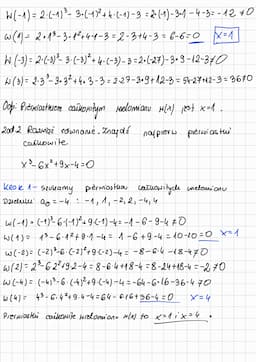 W(-1) = 2·(-1)³ - 3·(-1)² + 4·(-1) - 3 = 2·(-1) - 3·1 - 4 - 3 = -12 ≠ 0
W(1) = 2·1³ - 3·1² + 4·1 - 3 = 2 - 3 + 4 - 3 = 6 - 6 = 0 x=1
W(-3) = 2·(-3)³ - 3·(-3)² + 4·(-3) - 3 = 2·(-27) - 3·9 - 12 - 3 ≠ 0
W(3) = 2·3³ - 3·3² + 4·3 - 3 = 2·27 - 3·9 + 12 - 3 = 54 - 27 + 12 - 3 = 36 ≠ 0
Odp: Pierwiastkiem całkowitym wielomianu W(x) jest x=1.
Zad 2 Rozwiąż równanie. Znajdź najpierw pierwiastki
całkowite
x³ - 6x² + 9x - 4 = 0
Krok 1 - szukamy pierwiastków całkowitych wielomianu
Dzielniki a₀ = -4 : -1, 1, -2, 2, -4, 4
W(-1) = (-1)³ - 6·(-1)² + 9·(-1) - 4 = -1 - 6 - 9 - 4 ≠ 0
W(1) = 1³ - 6·1² + 9·1 - 4 = 1 - 6 + 9 - 4 = 10 - 10 = 0 x=1
W(-2) = (-2)³ - 6·(-2)² + 9·(-2) - 4 = -8 - 6·4 - 18 - 4 ≠ 0
W(2) = 2³ - 6·2² + 9·2 - 4 = 8 - 6·4 + 18 - 4 = 8 - 24 + 18 - 4 = -2 ≠ 0
W(-4) = (-4)³ - 6·(-4)² + 9·(-4) - 4 = -64 - 6·16 - 36 - 4 ≠ 0
W(4) = 4³ - 6·4² + 9·4 - 4 = 64 - 6·16 + 36 - 4 = 0 x=4
Pierwiastki całkowite wielomianu W(x) to x=1 i x=4.